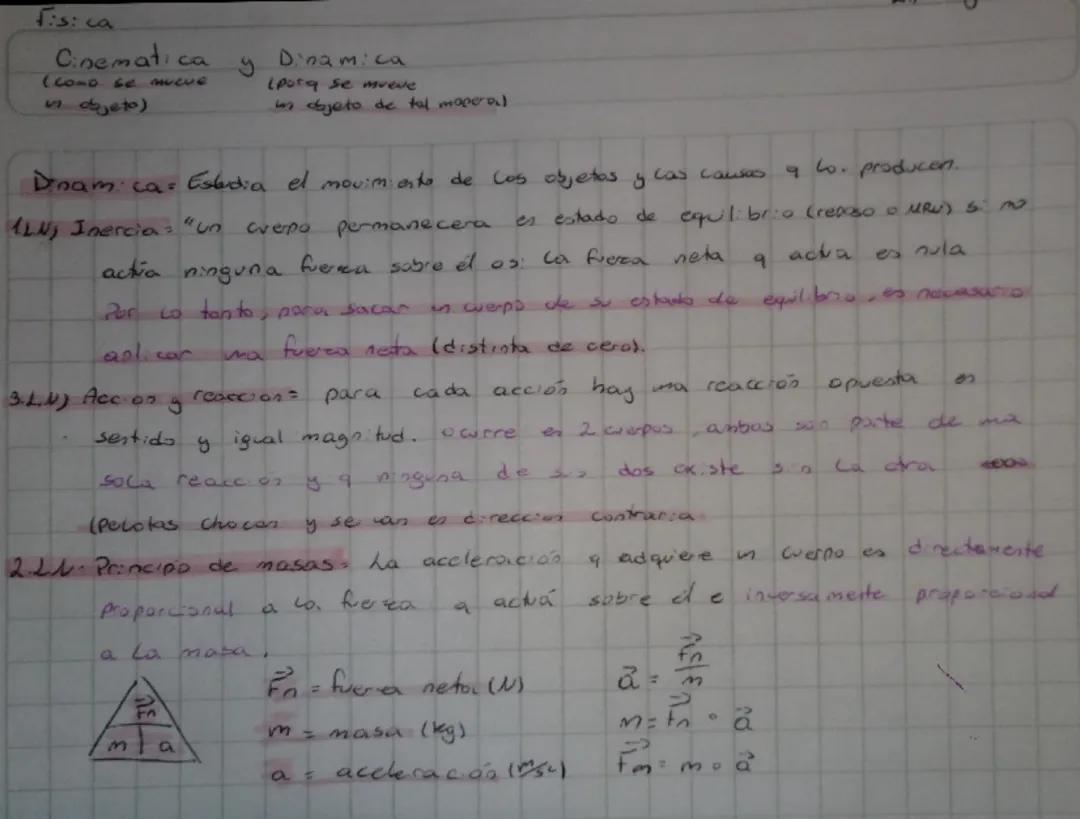 Física
Cinematica y Dinamica
(como se mueve (porq se mueve
un objeto) un objeto de tal manera)
Dinamica = Estudia el movimiento de los objetos y las causas q lo producen.
1LN) Inercia = "un cuerpo permanecera en estado de equilibrio (reposo o MRU) si no
actúa ninguna fuerza sobre él o si la fuerza neta q actua es nula
Por lo tanto, para sacar un cuerpo de su estado de equilibrio, es necesario
aplicar una fuerza neta (distinta de cero).
3.L.N) Accion y reaccion = para cada acción hay una reacción opuesta en
sentido y igual magnitud. Ocurre en 2 cuerpos, ambas son parte de una
sola reacción y q ninguna de las dos existe sin la otra
(pelotas chocan y se van en direccion contraria
2.LN. Principio de masas. La aceleración q adquiere un cuerpo es directamente
proporcional a la fuerza q actuá sobre él e inversamente proporcional
a la masa.
Fn = fuerza neta (N) a = Fn/m
m = masa (kg) m = Fn • a
a = aceleración (m/s2) Fm = m • a
Fn
m a